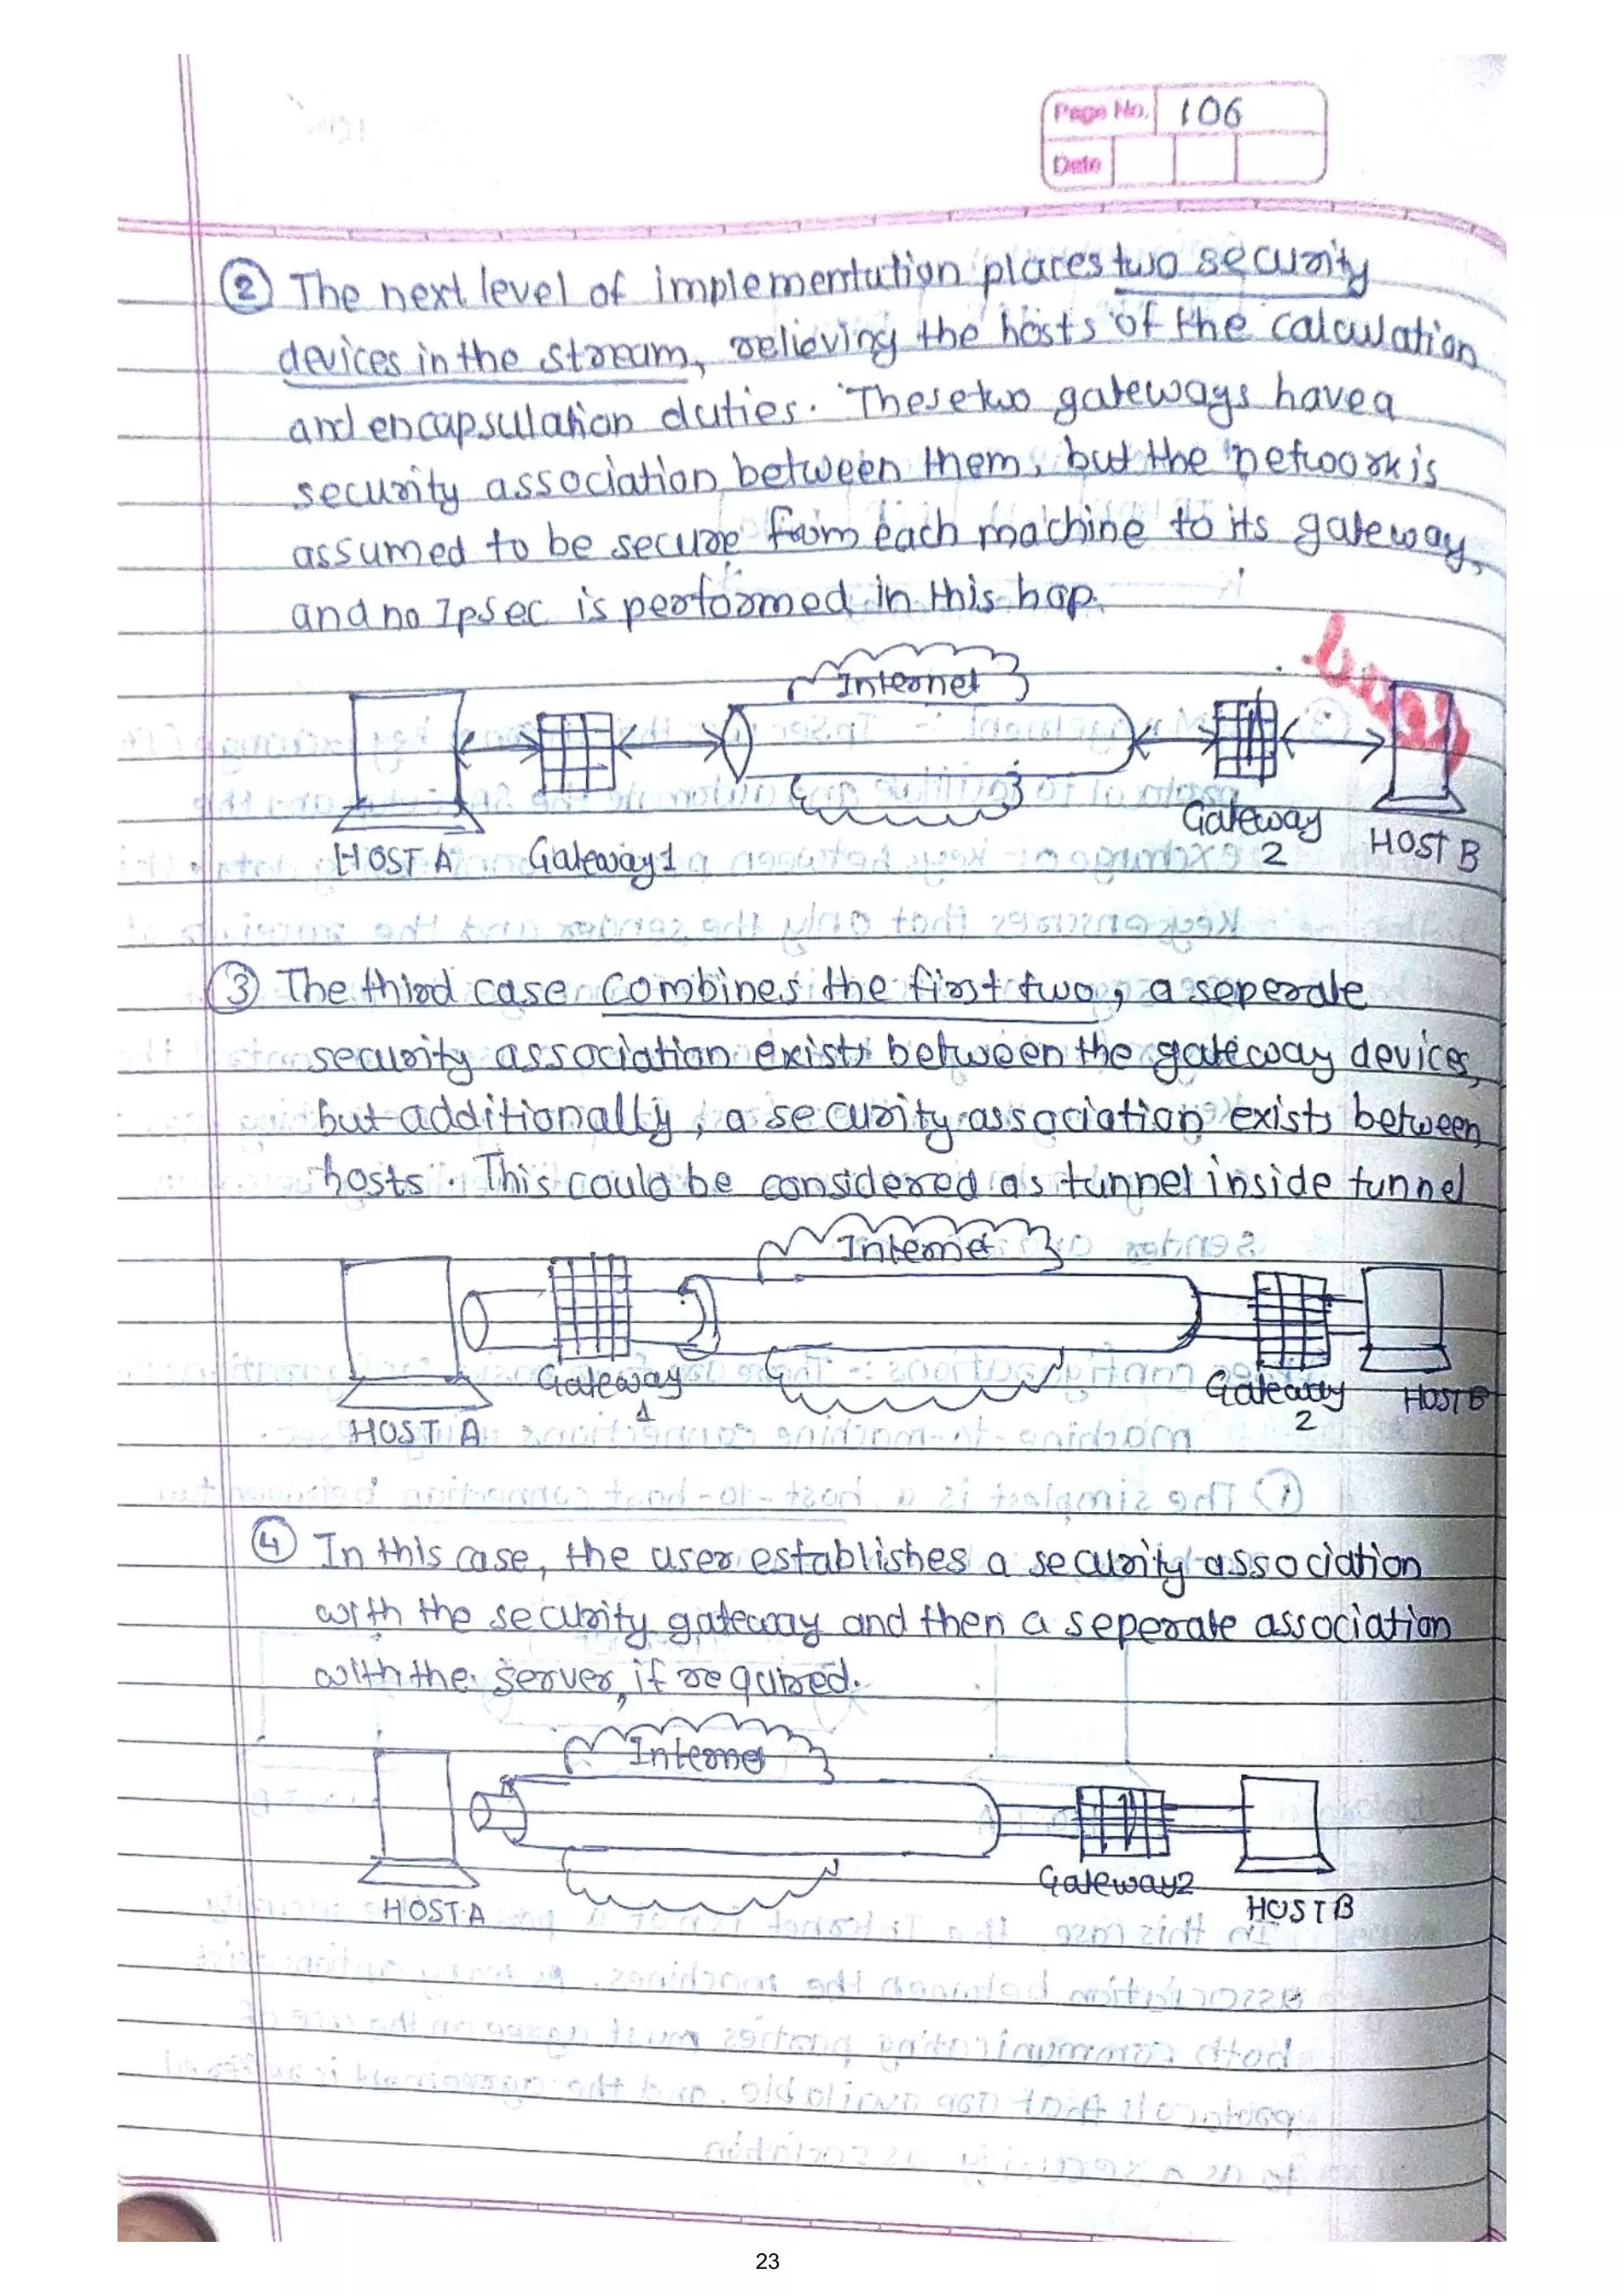 Page No. 106
Date
② The next level of implementation places two security
devices in the stream, relieving the hosts of the calculation
and encapsulation duties. These two gateways have a
security association between them, but the network is
assumed to be secure from each machine to its gateway,
and no IpSec is performed in this hop.
Internet
HOST A Gateway 1 Gateway 2 HOST B
③ The third case combines the first two, a seperate
security association exists between the gateway devices,
but additionally, a security association exists between
hosts. This could be considered as tunnel inside tunnel
Internet
HOST A Gateway 1 Gateway 2 HOST B
④ In this case, the user establishes a security association
with the security gateway and then a seperate association
with the server, if required.
Internet
HOST A Gateway2 HOST B
23